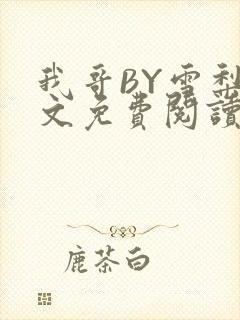 我哥BY雪梨
文免费阅读
鹿茶白